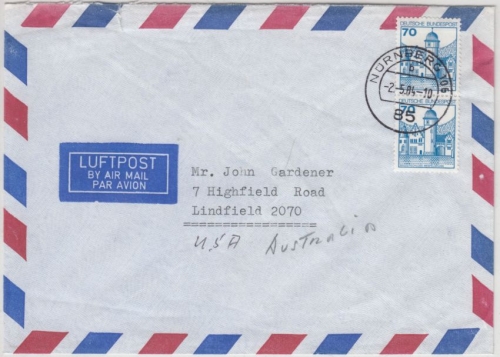 70
DEUTSCHE BUNDESPOST
NÜRNBERG 106
-2.-5.84-10
85
70
DEUTSCHE BUNDESPOST
LUFTPOST
BY AIR MAIL
PAR AVION
Mr. John Gardener
7 Highfield Road
Lindfield 2070
USA Australia